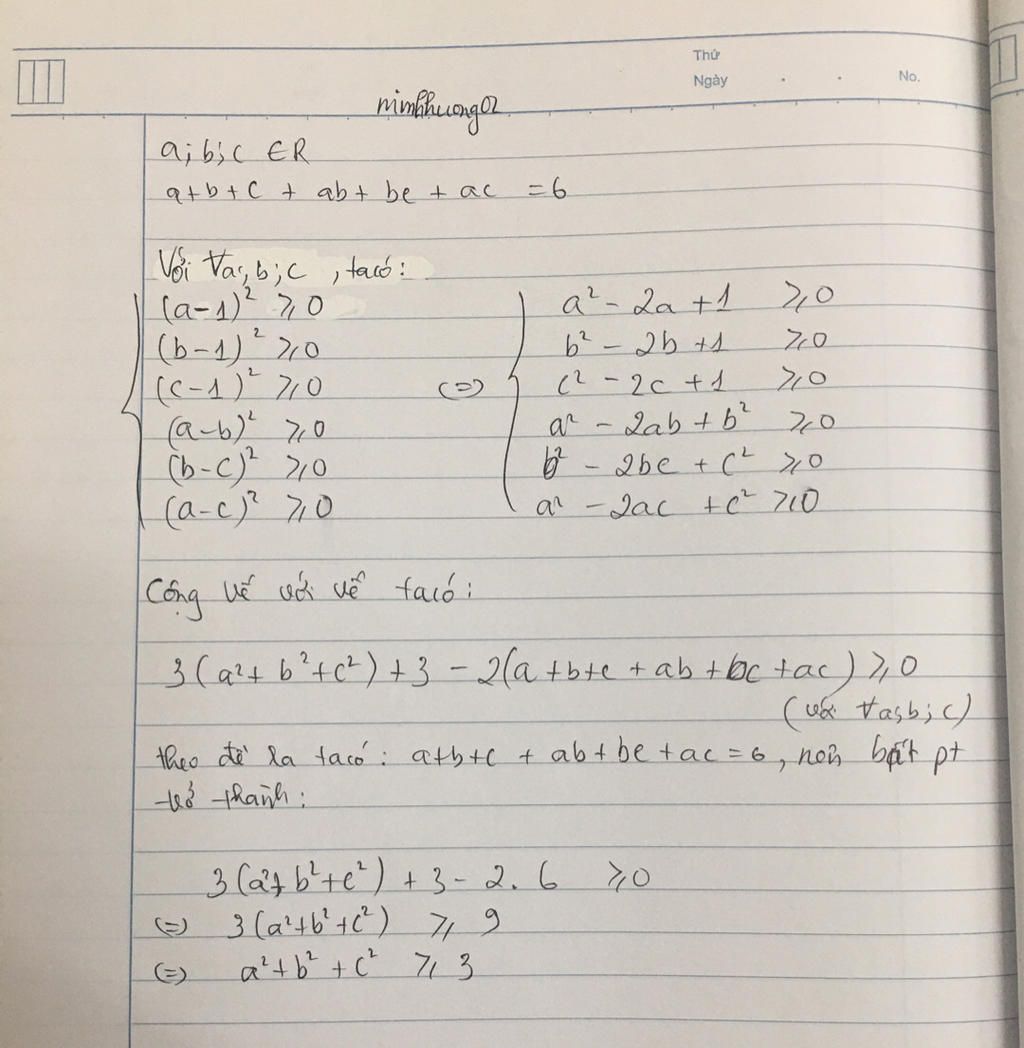 Thứ
Ngày . . No.
minhhuong02
a;b;c ∈R
a+b+c + ab+ bc + ac = 6
Với ∀a;b;c , ta có:
(a-1)² ≥0 a² - 2a +1 ≥0
(b-1)² ≥0 b² - 2b +1 ≥0
(c-1)² ≥0 (=) c² - 2c +1 ≥0
(a-b)² ≥0 a² - 2ab + b² ≥0
(b-c)² ≥0 b² - 2bc + c² ≥0
(a-c)² ≥0 a² - 2ac + c² ≥0
Cộng vế với vế ta có:
3(a²+ b²+c²) +3 - 2(a +b+c + ab +bc +ac) ≥0
(với ∀a;b;c)
theo đề ra ta có: a+b+c + ab+bc+ac =6, nên bất pt
trở thành:
3(a²+ b²+c²) + 3 - 2. 6 ≥0
(=) 3(a²+b²+c²) ≥ 9
(=) a²+b² +c² ≥ 3